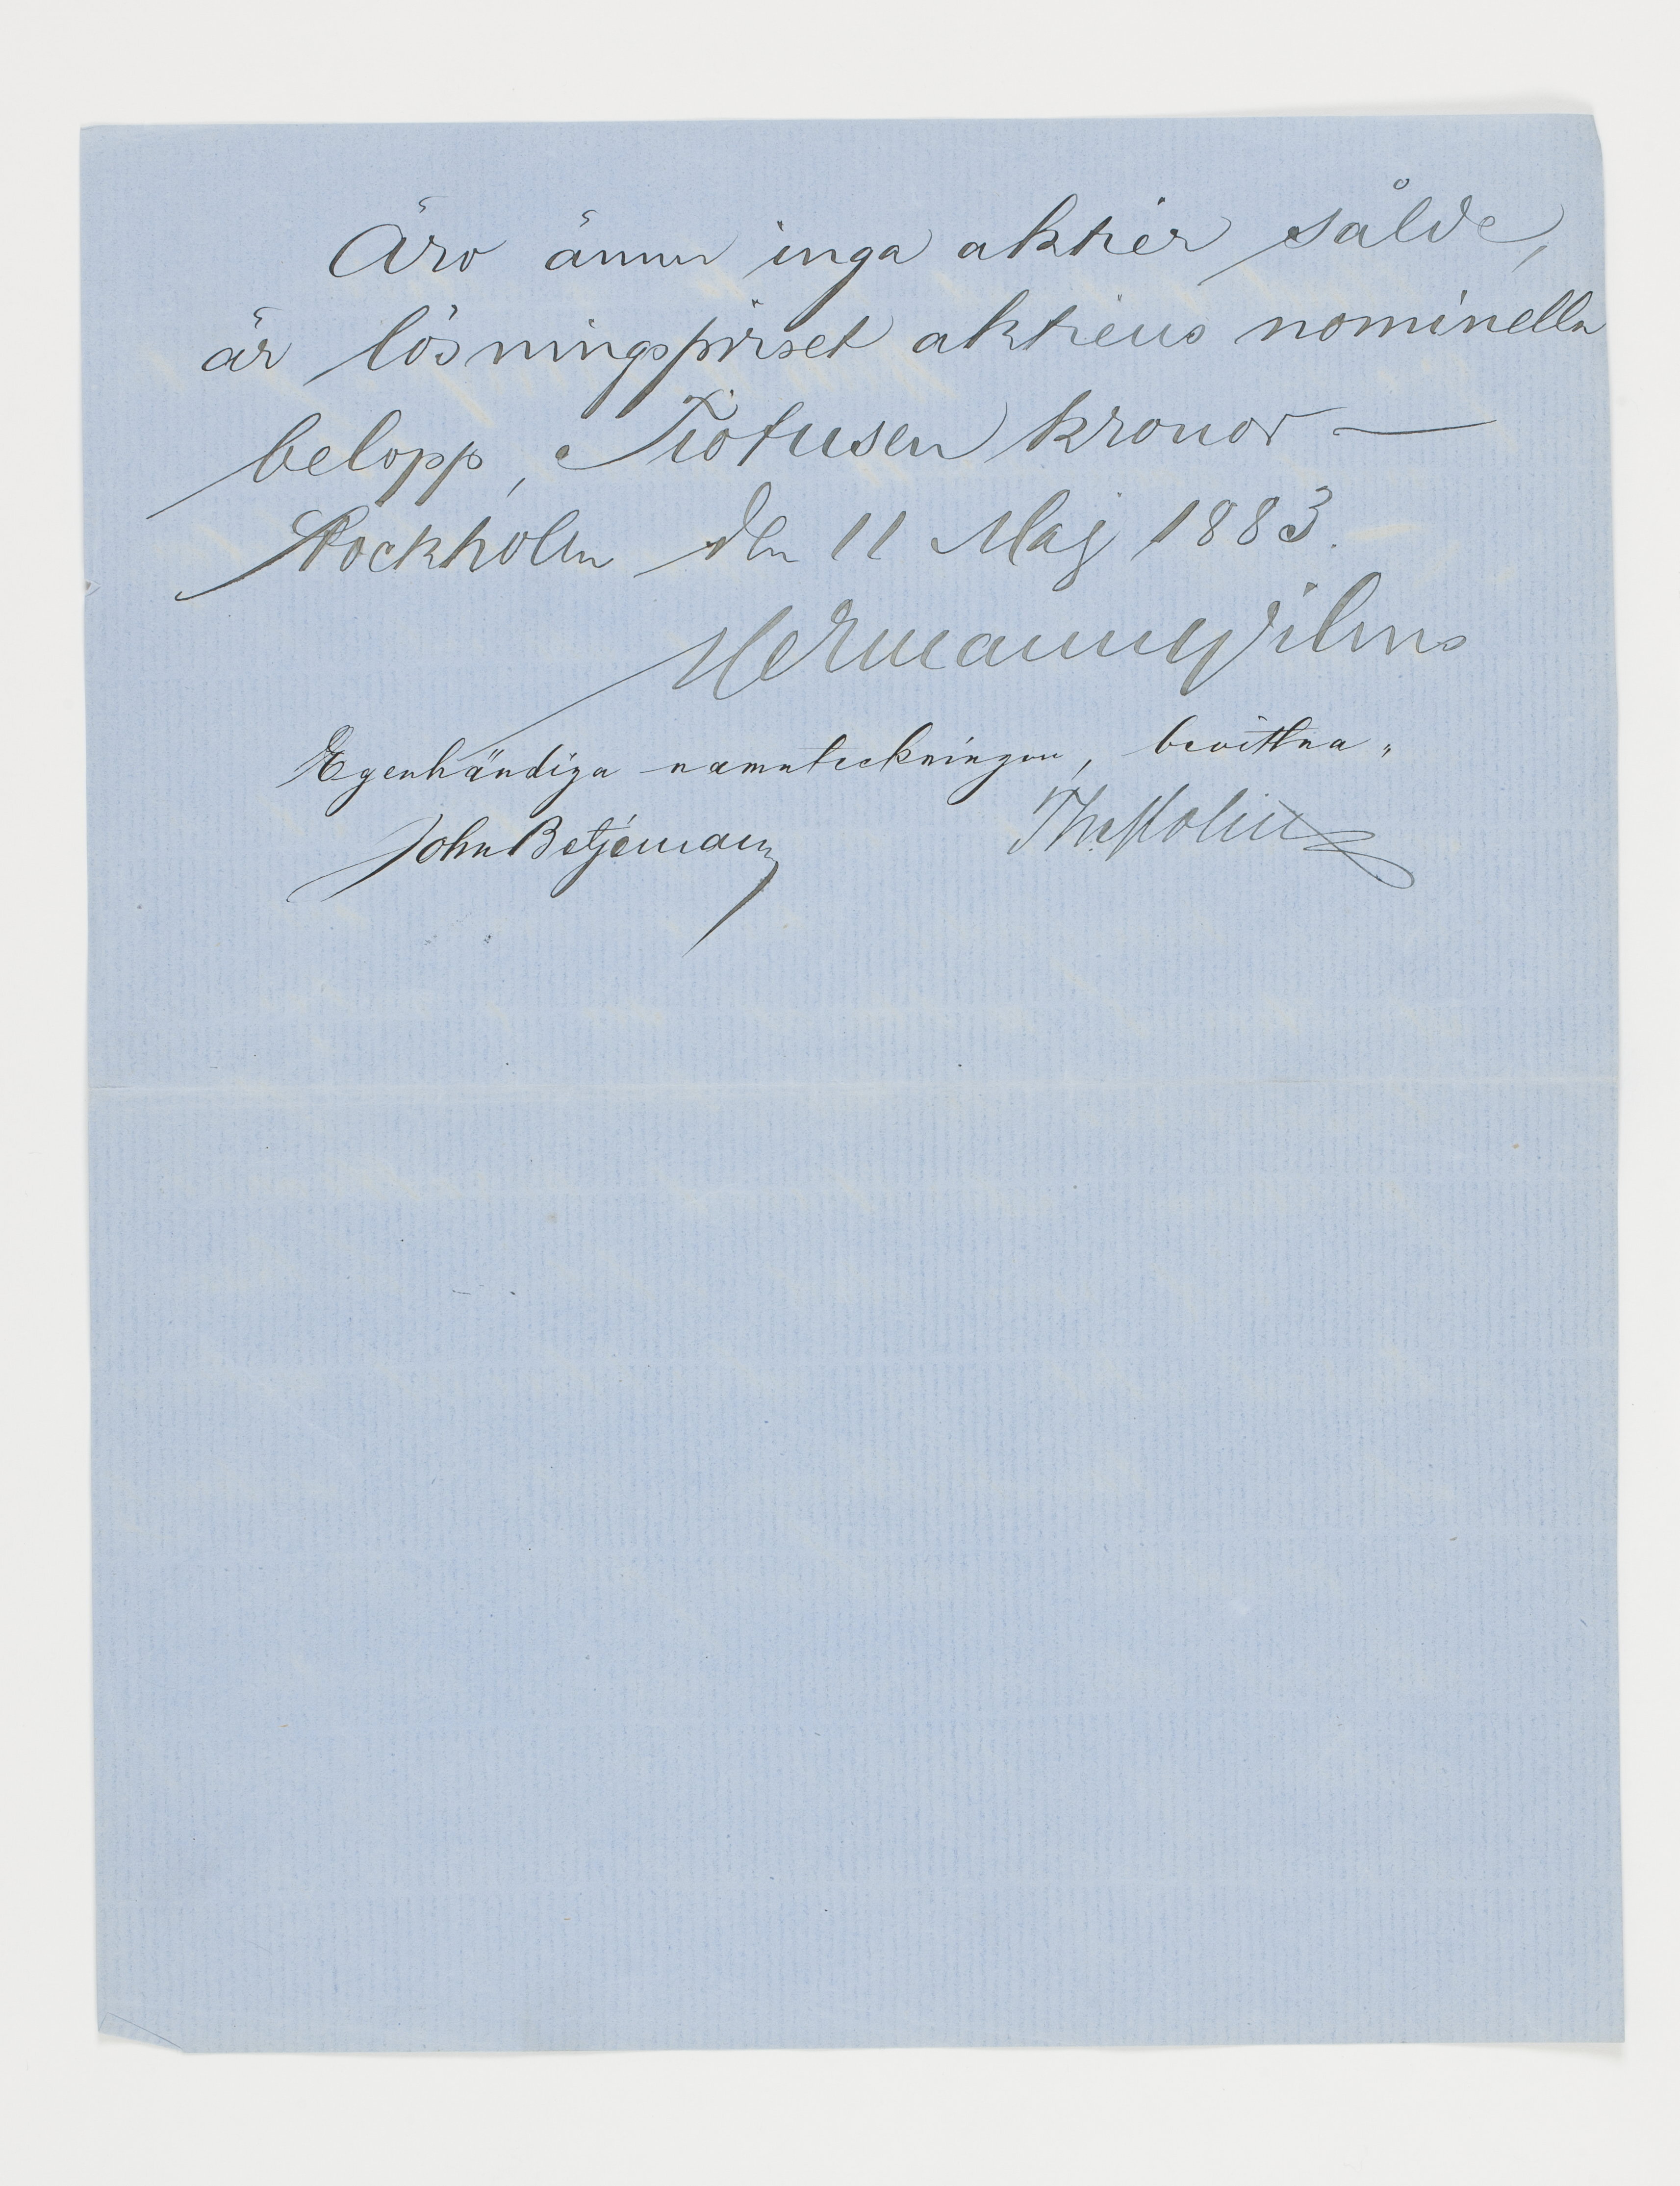 Äro ännu inga aktier sålde,
är lösningspriset aktiens nominella
belopp, Tiotusen kronor —
Stockholm den 11 Maj 1883.
Hermann Wilms
Egenhändiga namnteckningen, bevittna„
John Betjemann Th. Molin